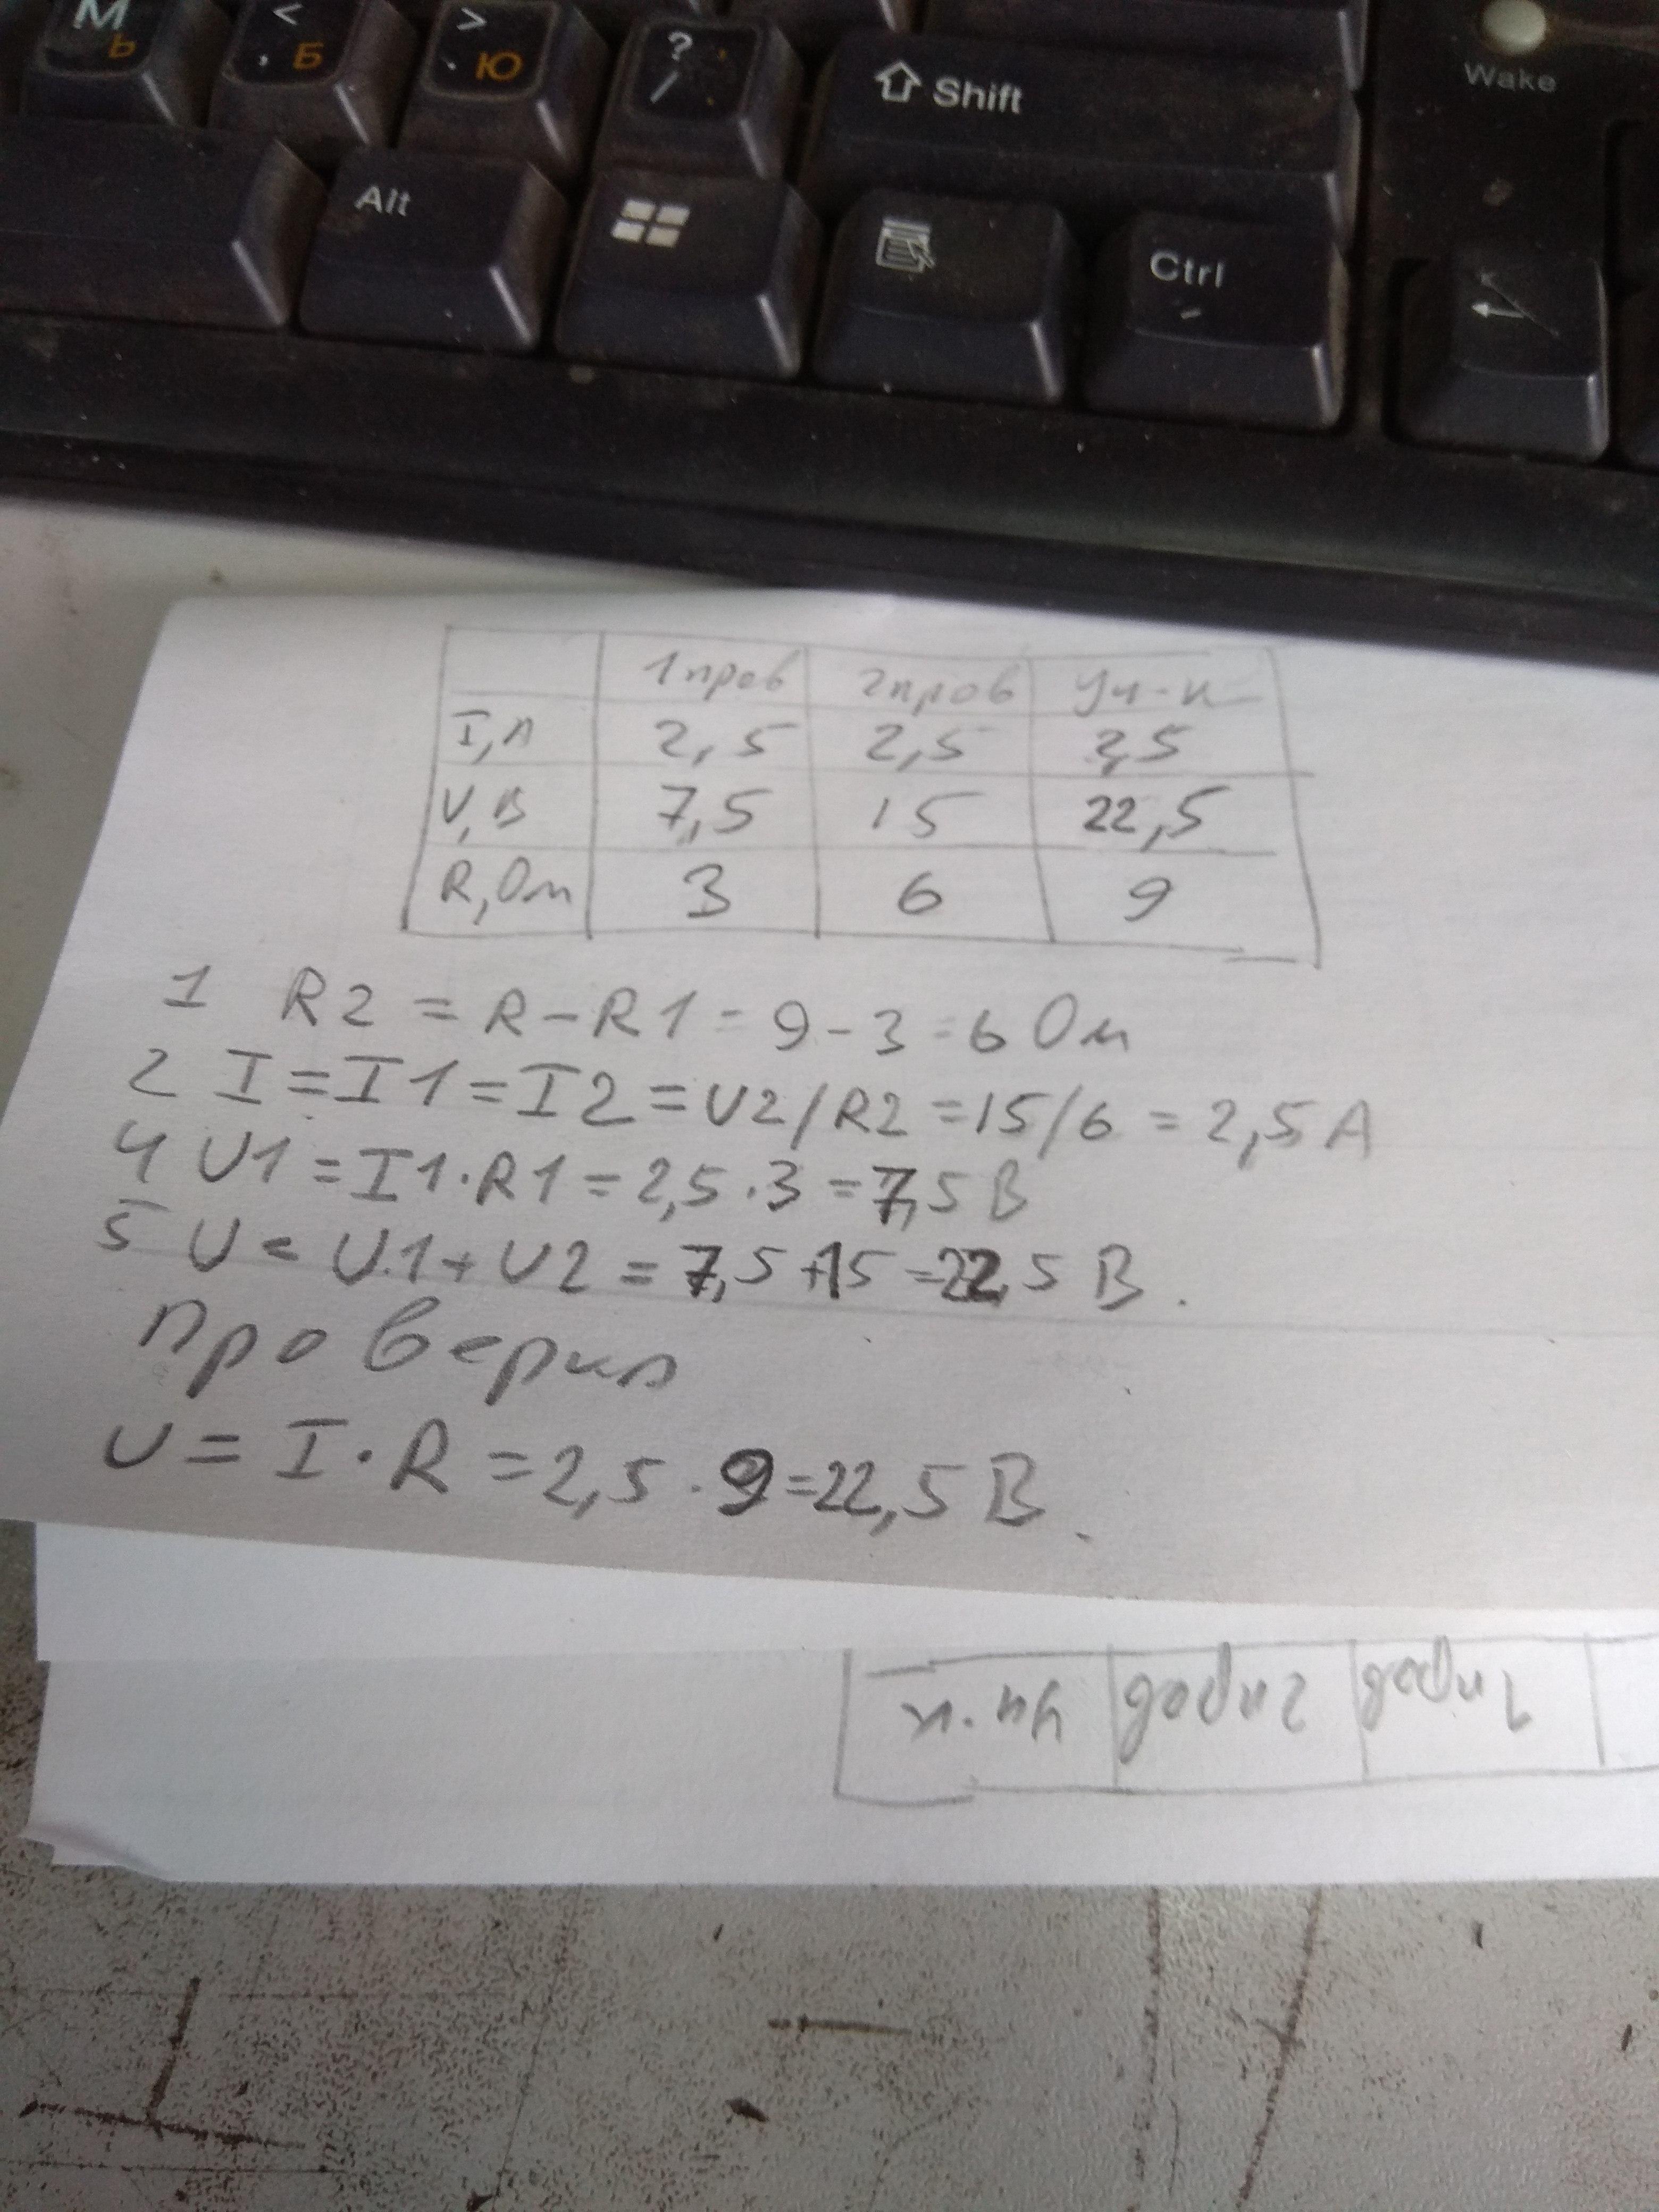 М Ь < , Б > . Ю ? / Shift Wake
Alt Ctrl
1пров 2пров Уч-к
I, А 2,5 2,5 2,5
U, В 7,5 15 22,5
R, Ом 3 6 9
1 R2 = R - R1 = 9 - 3 = 6 Ом
2 I = I1 = I2 = U2/R2 = 15/6 = 2,5 А
4 U1 = I1·R1 = 2,5·3 = 7,5 В
5 U = U1 + U2 = 7,5 + 15 = 22,5 В.
проверил
U = I·R = 2,5·9 = 22,5 В.
1пров 2пров Уч-к